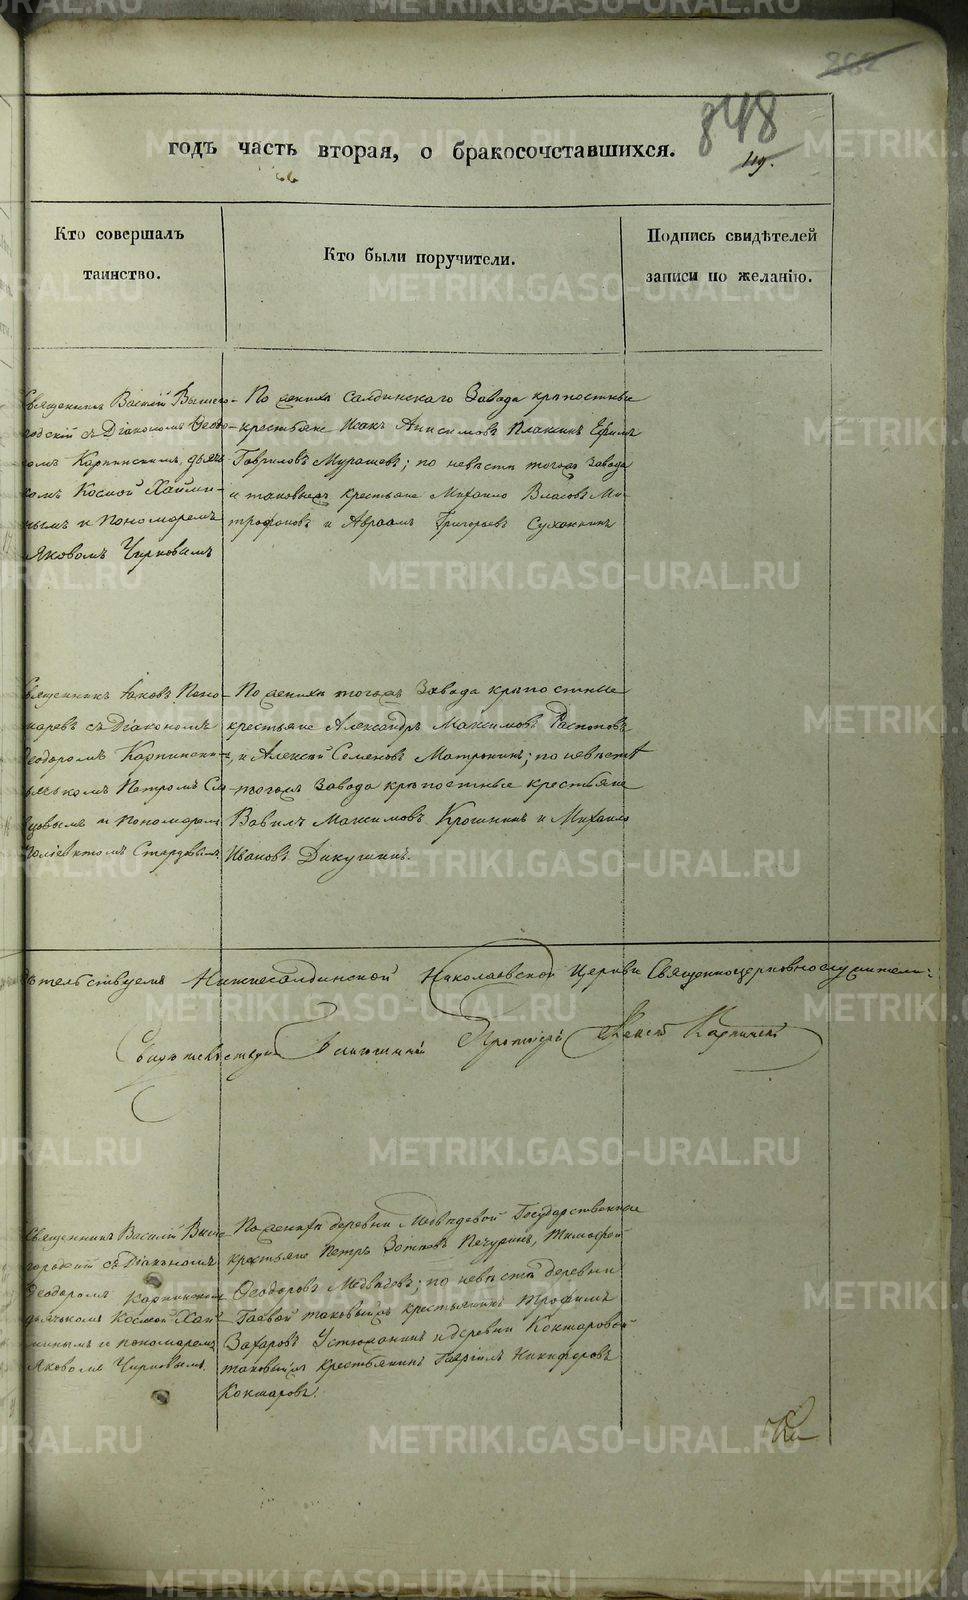 848
119.
годъ часть вторая, о бракосочставшихся.
Кто совершалъ
таинство.
Кто были поручители.
Подпись свидѣтелей
записи по желанію.
Священникъ Василій Вышего-
родскій съ Діакономъ Ѳеодо-
ромъ Карпинскимъ, дьяч-
комъ Космой Хайми-
нымъ и Пономаремъ
Яковомъ Чирковымъ
По женихѣ Салдинскаго Завода крѣпостные
крестьяне Исакъ Анисимовъ Плаксинъ Ефимъ
Гавриловъ Мурашевъ; по невѣстѣ тогожъ Завода
и таковыежъ крестьяне Михайло Власовъ Ми-
трофановъ и Авраамъ Григорьевъ Суханкинъ
Священникъ Іаковъ Поно-
маревъ съ Діакономъ
Ѳеодоромъ Карпинскимъ,
дьячкомъ Петромъ
и Пономаремъ
По женихѣ тогожъ Завода крѣпостные
крестьяне Александръ Максимовъ Распоповъ
и Алексѣй Семеновъ Матронинъ; по невѣстѣ
тогожъ Завода крѣпостные крестьяне
Вавилъ Максимовъ Крошнинъ и Михайло
Ивановъ Дикушинъ.
Нижнесалдинской Николаевской Церкви Священноцерковнослужители:
Свидѣтельствую Благочинный Протоіерей Карпинскій
Священникъ Василій Выше-
городскій съ Діакономъ
Ѳеодоромъ Карпинскимъ
дьячкомъ Космой Хай-
минымъ и пономаремъ
Яковомъ Чирковымъ.
По женихѣ деревни Медвѣдевой Государственные
крестьяне Петръ Зотиковъ Печуринъ, Тимофей
Ѳеодоровъ Медвѣдевъ; по невѣстѣ деревни
Гаевой таковыйжъ крестьянинъ Трофимъ
Захаровъ Устюжанинъ и деревни Кокшаровой
таковыйжъ крестьянинъ Гавріилъ Никифоровъ
Кокшаровъ.
METRIKI.GASO-URAL.RU